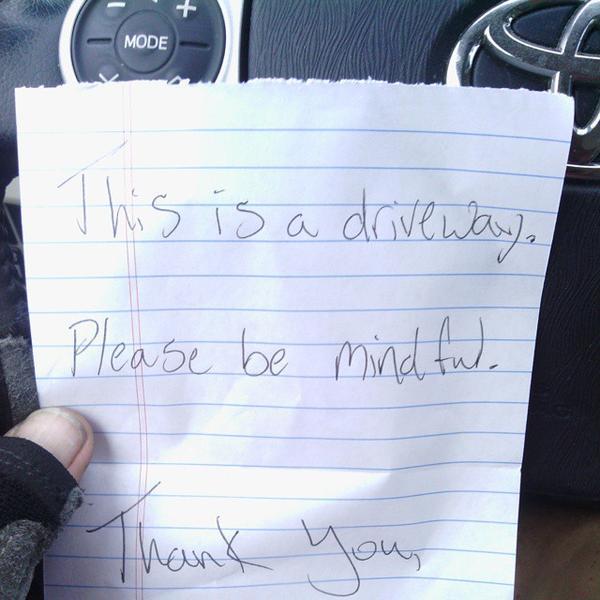 MODE
This is a driveway.
Please be mindful.
Thank You,